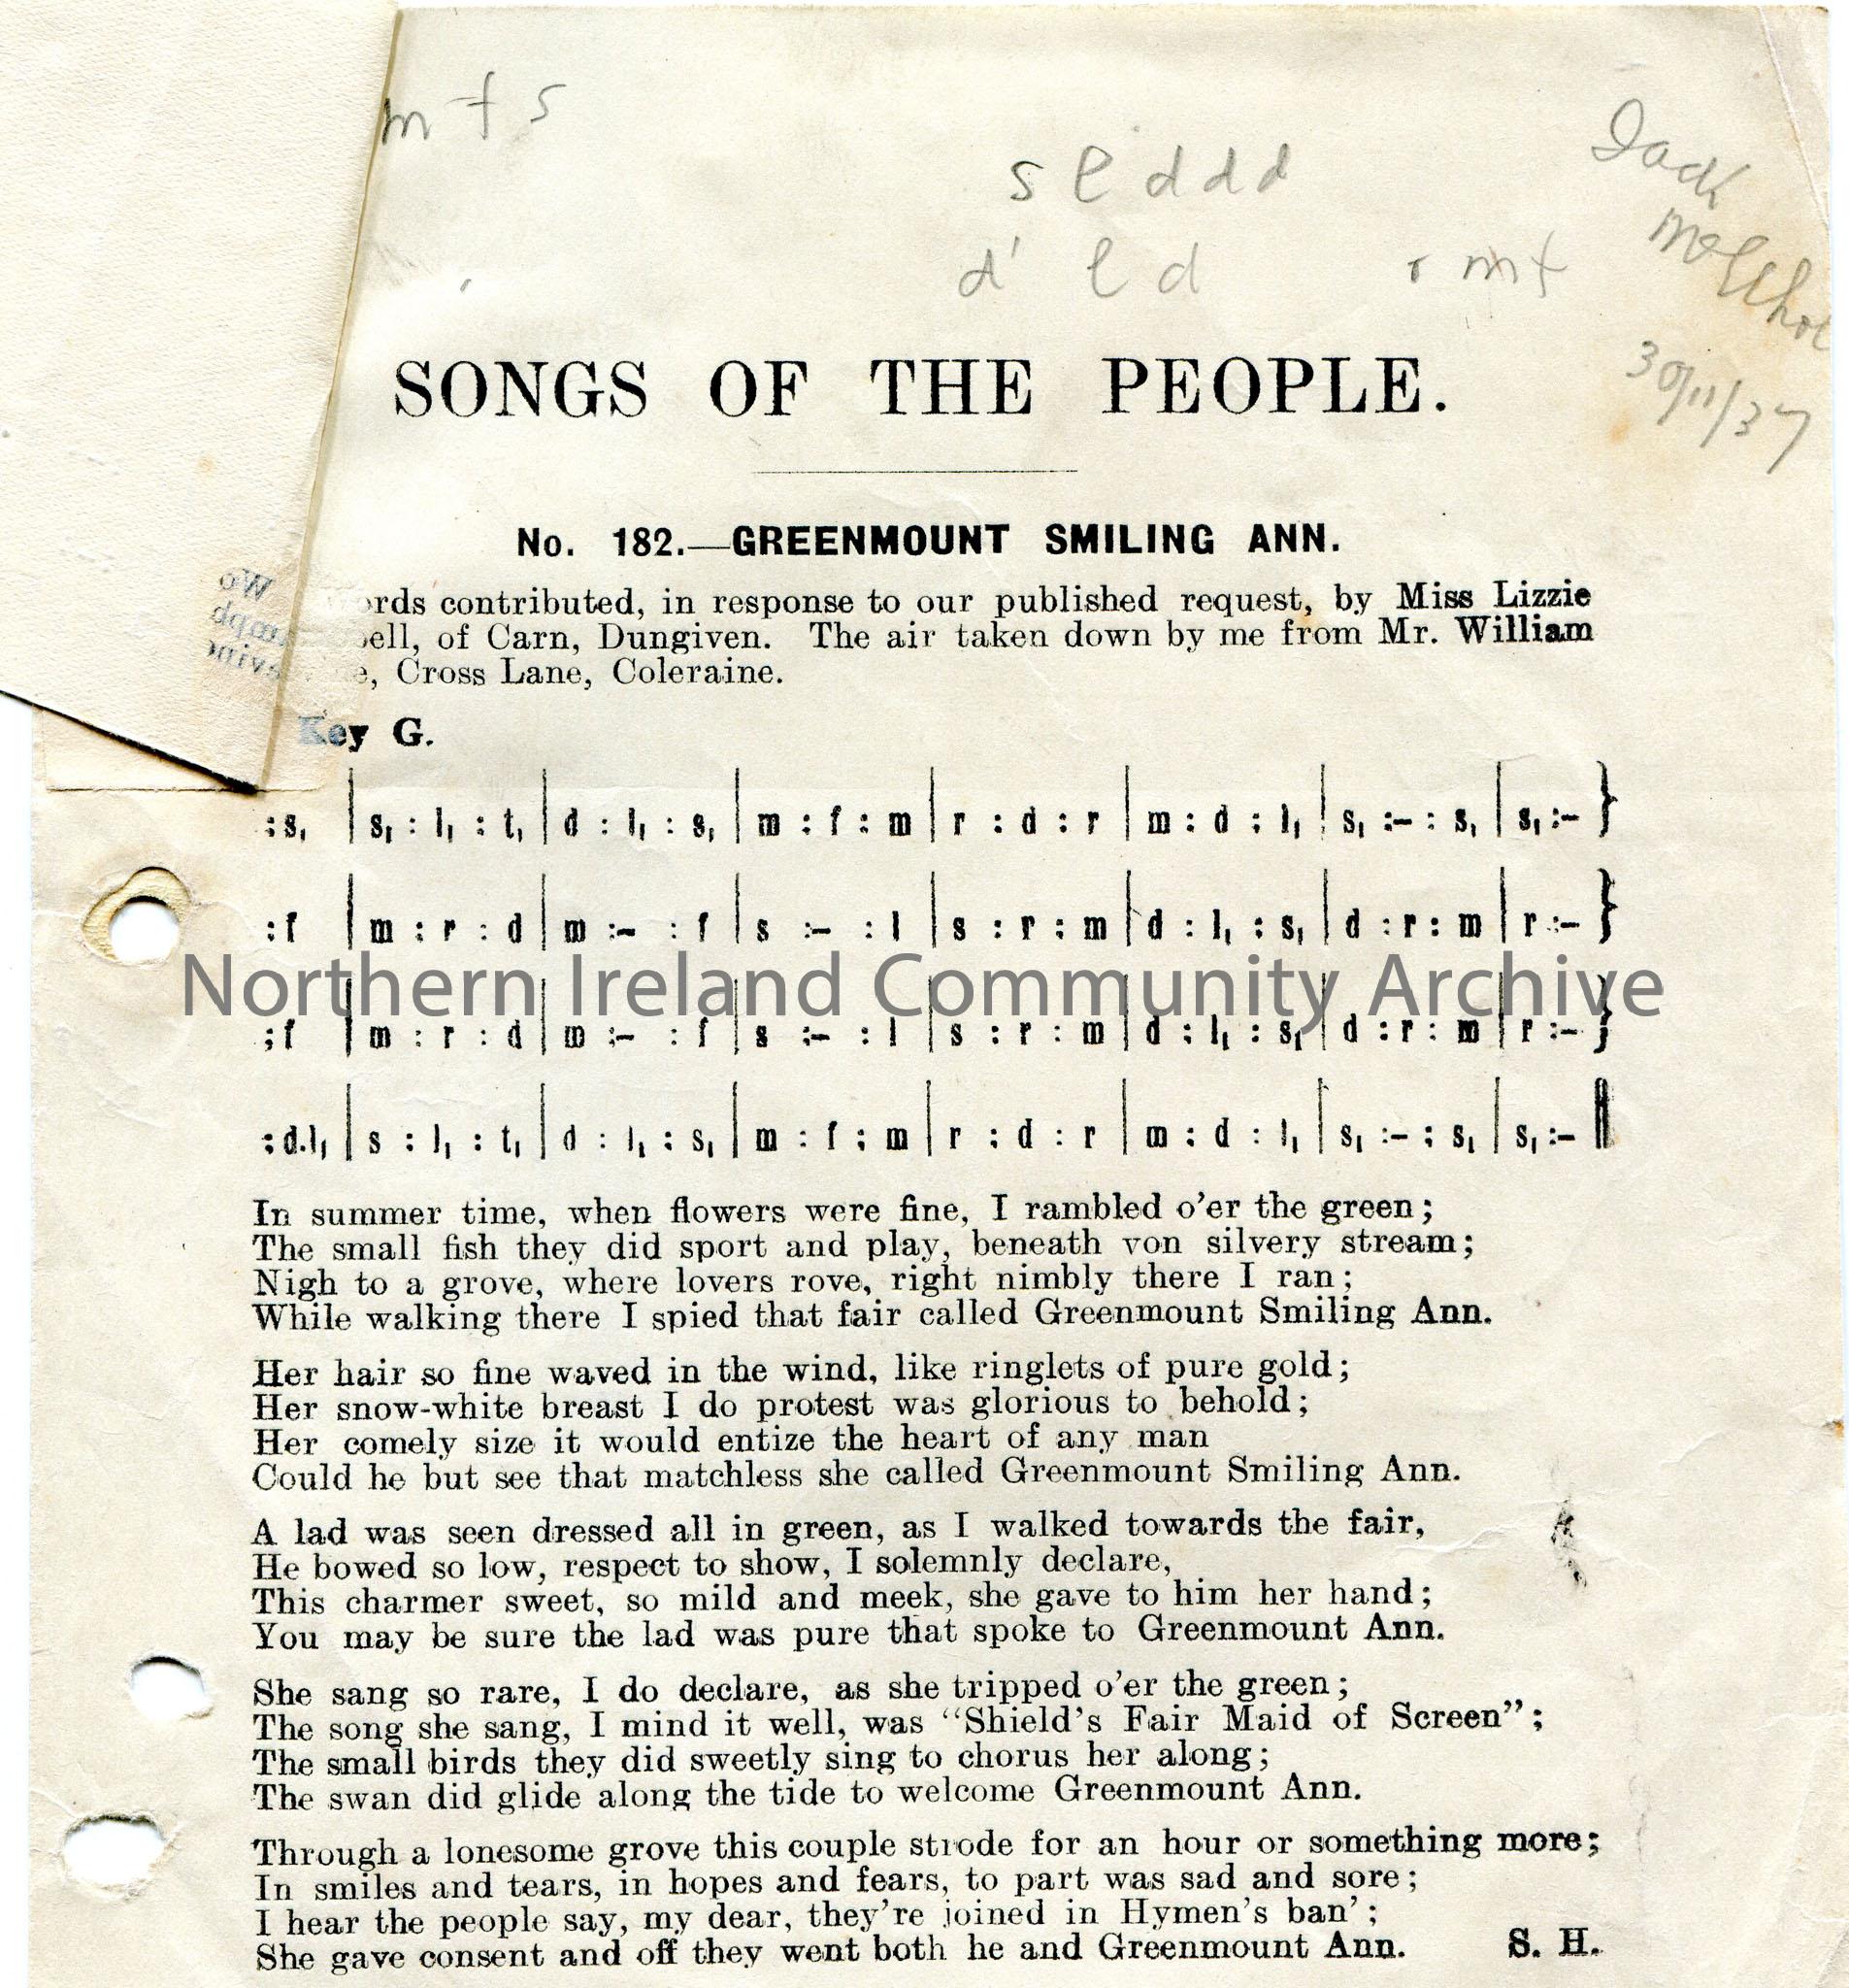 m f s
s l d d d
d' l d r m f
Jack
30/11/37
SONGS OF THE PEOPLE.
No. 182.—GREENMOUNT SMILING ANN.
ords contributed, in response to our published request, by Miss Lizzie
ell, of Carn, Dungiven. The air taken down by me from Mr. William
e, Cross Lane, Coleraine.
Key G.
:s, | s, : l, : t, | d : l, : s, | m : f : m | r : d : r | m : d : l, | s, :– : s, | s, :– }
:f | m : r : d | m :– : f | s :– : l | s : r : m | d : l, : s, | d : r : m | r :– }
Northern Ireland Community Archive
:f | m : r : d | m :– : f | s :– : l | s : r : m | d : l, : s, | d : r : m | r :– }
:d.l, | s : l, : t, | d : l, : s, | m : f : m | r : d : r | m : d : l, | s, :– : s, | s, :– ||
In summer time, when flowers were fine, I rambled o'er the green;
The small fish they did sport and play, beneath von silvery stream;
Nigh to a grove, where lovers rove, right nimbly there I ran;
While walking there I spied that fair called Greenmount Smiling Ann.
Her hair so fine waved in the wind, like ringlets of pure gold;
Her snow-white breast I do protest was glorious to behold;
Her comely size it would entize the heart of any man
Could he but see that matchless she called Greenmount Smiling Ann.
A lad was seen dressed all in green, as I walked towards the fair,
He bowed so low, respect to show, I solemnly declare,
This charmer sweet, so mild and meek, she gave to him her hand;
You may be sure the lad was pure that spoke to Greenmount Ann.
She sang so rare, I do declare, as she tripped o'er the green;
The song she sang, I mind it well, was "Shield's Fair Maid of Screen";
The small birds they did sweetly sing to chorus her along;
The swan did glide along the tide to welcome Greenmount Ann.
Through a lonesome grove this couple strode for an hour or something more;
In smiles and tears, in hopes and fears, to part was sad and sore;
I hear the people say, my dear, they're joined in Hymen's ban';
She gave consent and off they went both he and Greenmount Ann. S. H.